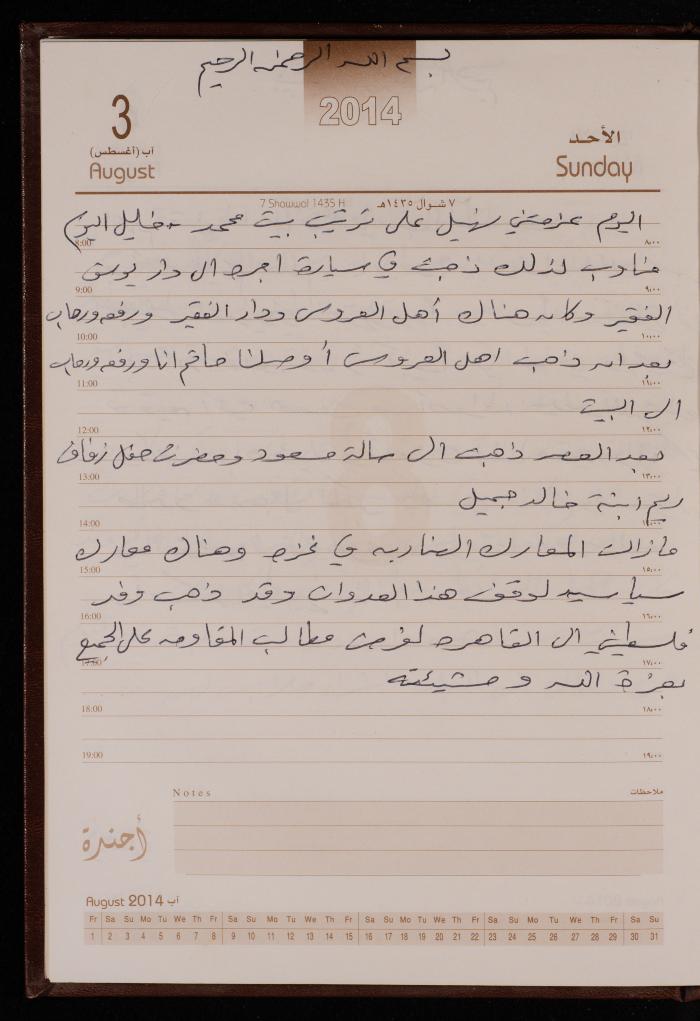 بسم الله الرحمن الرحيم
2014
3
آب (أغسطس)
August
الأحد
Sunday
7 Shawwal 1435 H
٧ شوال ١٤٣٥هـ
اليوم على ترتيب بيت محمد خليل
8:00
٨:٠٠
لذلك ذهبت في سيارة اجره ال دار يوسف
9:00
٩:٠٠
الفقير وكان هناك أهل العروس ودار الفقير ورفقه ورحاب
10:00
١٠:٠٠
بعد ان ذهب اهل العروس أوصلنا حاتم انا ورفقه ورحاب
11:00
١١:٠٠
ال البيت
12:00
١٢:٠٠
بعد العصر ذهبت ال صالة مسعود وحضرت حفل زفاف
13:00
١٣:٠٠
ريم ابنة خالد جميل
14:00
١٤:٠٠
مازالت المعارك الضاربه في غزه وهناك معارك
15:00
١٥:٠٠
سياسيه لوقف هذا العدوان وقد ذهب وفد
16:00
١٦:٠٠
فلسطيني ال القاهره لفرض مطالب المقاومه على الجميع
17:00
١٧:٠٠
بعزة الله ومشيئته
18:00
١٨:٠٠
19:00
١٩:٠٠
Notes
ملاحظات
أجندة
August 2014 آب
Fr Sa Su Mo Tu We Th Fr Sa Su Mo Tu We Th Fr Sa Su Mo Tu We Th Fr Sa Su Mo Tu We Th Fr Sa Su
1 2 3 4 5 6 7 8 9 10 11 12 13 14 15 16 17 18 19 20 21 22 23 24 25 26 27 28 29 30 31